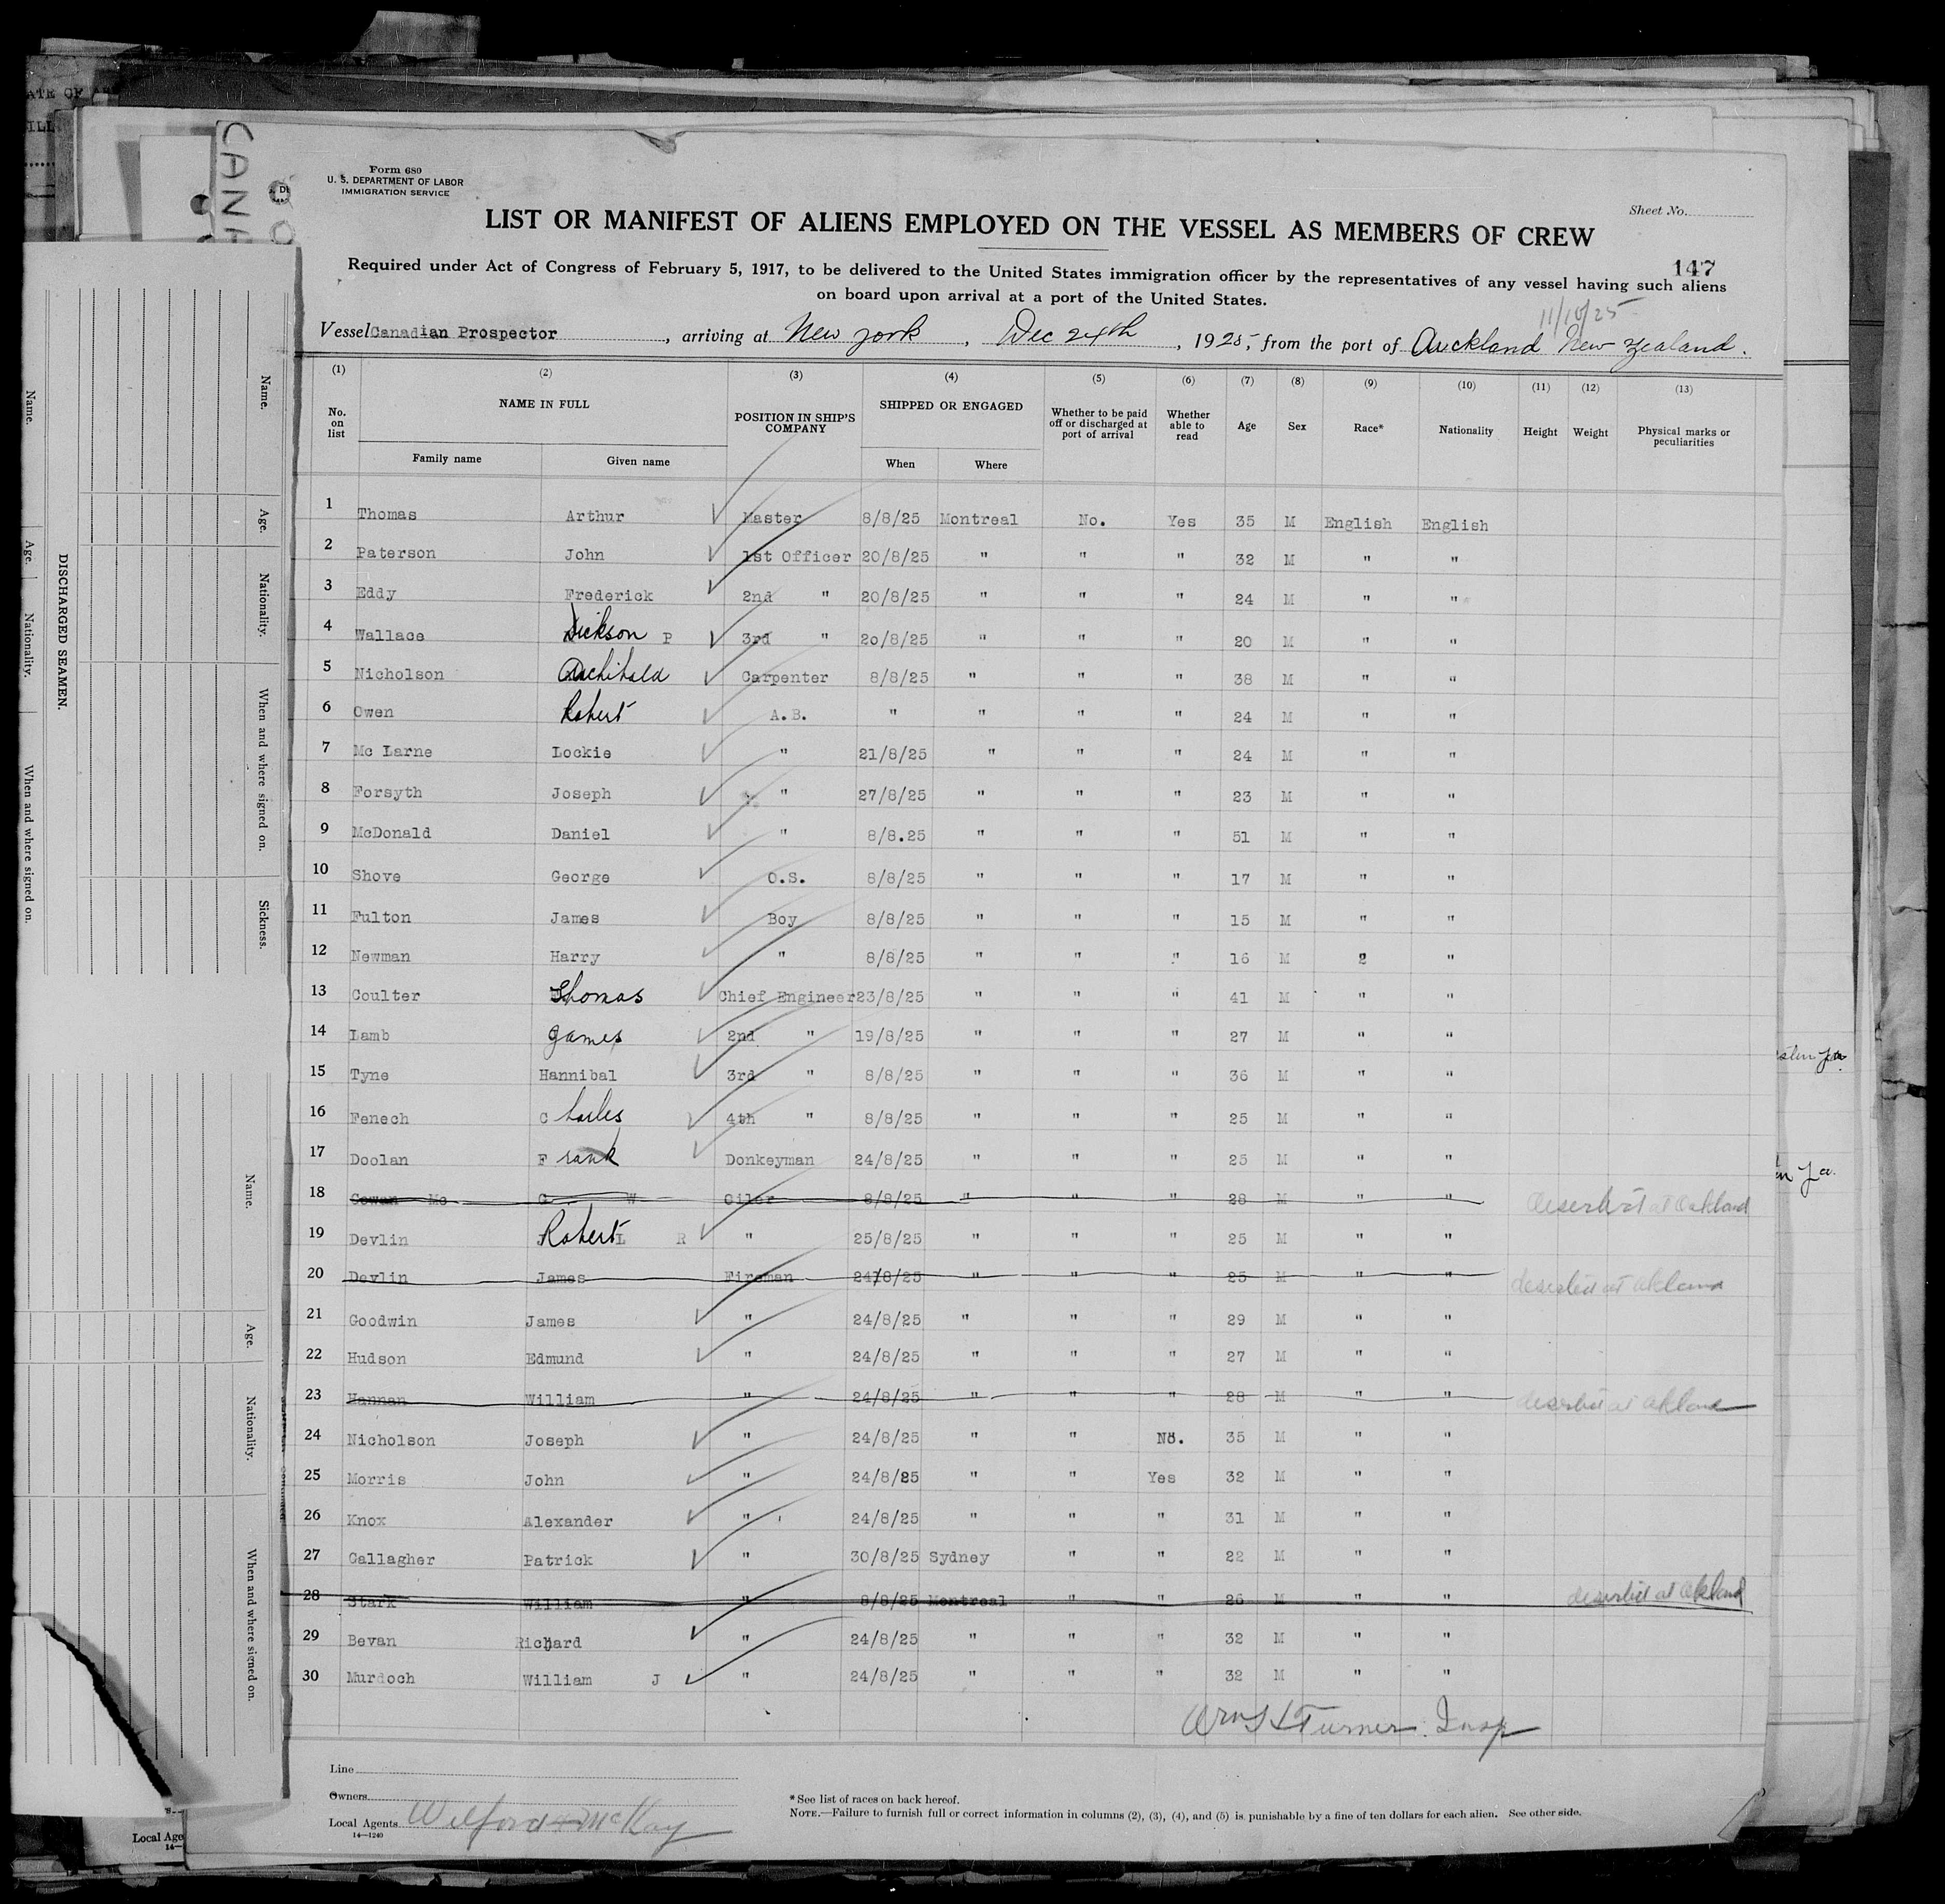 Form 680
U. S. DEPARTMENT OF LABOR
IMMIGRATION SERVICE
Sheet No.
LIST OR MANIFEST OF ALIENS EMPLOYED ON THE VESSEL AS MEMBERS OF CREW
147
Required under Act of Congress of February 5, 1917, to be delivered to the United States immigration officer by the representatives of any vessel having such aliens
on board upon arrival at a port of the United States.
11/10/25
Vessel Canadian Prospector, arriving at New York, Dec 24th, 1925, from the port of Auckland New Zealand.
(1) (2) (3) (4) (5) (6) (7) (8) (9) (10) (11) (12) (13)
No. on list NAME IN FULL POSITION IN SHIP'S COMPANY SHIPPED OR ENGAGED Whether to be paid off or discharged at port of arrival Whether able to read Age Sex Race* Nationality Height Weight Physical marks or peculiarities
Family name Given name When Where
1 Thomas Arthur Master 8/8/25 Montreal No. Yes 35 M English English
2 Paterson John 1st Officer 20/8/25 " " " 32 M " "
3 Eddy Frederick 2nd " 20/8/25 " " " 24 M " "
4 Wallace Dickson P 3rd " 20/8/25 " " " 20 M " "
5 Nicholson Archibald Carpenter 8/8/25 " " " 38 M " "
6 Owen Robert A.B. " " " " 24 M " "
7 Mc Larne Lockie " 21/8/25 " " " 24 M " "
8 Forsyth Joseph " 27/8/25 " " " 23 M " "
9 McDonald Daniel " 8/8.25 " " " 51 M " "
10 Shove George O.S. 8/8/25 " " " 17 M " "
11 Fulton James Boy 8/8/25 " " " 15 M " "
12 Newman Harry " 8/8/25 " " " 16 M 2 "
13 Coulter Thomas Chief Engineer 23/8/25 " " " 41 M " "
14 Lamb James 2nd " 19/8/25 " " " 27 M " "
15 Tyne Hannibal 3rd " 8/8/25 " " " 36 M " "
16 Fenech Charles 4th " 8/8/25 " " " 25 M " "
17 Doolan Frank Donkeyman 24/8/25 " " " 25 M " "
18 Cowan Mc G W Oiler 8/8/25 " " " 28 M " " deserted at Oakland
19 Devlin Robert L R " 25/8/25 " " " 25 M " "
20 Devlin James Fireman 24/8/25 " " " 25 M " " deserted at Akland
21 Goodwin James " 24/8/25 " " " 29 M " "
22 Hudson Edmund " 24/8/25 " " " 27 M " "
23 Hannan William " 24/8/25 " " " 28 M " " deserted at Akland
24 Nicholson Joseph " 24/8/25 " " No. 35 M " "
25 Morris John " 24/8/25 " " Yes 32 M " "
26 Knox Alexander " 24/8/25 " " " 31 M " "
27 Gallagher Patrick " 30/8/25 Sydney " " 22 M " "
28 Stark William " 8/8/25 Montreal " " 26 M " " deserted at Akland
29 Bevan Richard " 24/8/25 " " " 32 M " "
30 Murdoch William J " 24/8/25 " " " 32 M " "
Turner Insp
Line
Owners
Local Agents Wilford & McKay
14—1240
* See list of races on back hereof.
NOTE.—Failure to furnish full or correct information in columns (2), (3), (4), and (5) is punishable by a fine of ten dollars for each alien. See other side.
DISCHARGED SEAMEN.
Name. Age. Nationality. When and where signed on.
Name. Age. Nationality. When and where signed on. Sickness.
Name. Age. Nationality. When and where signed on.
Local Age